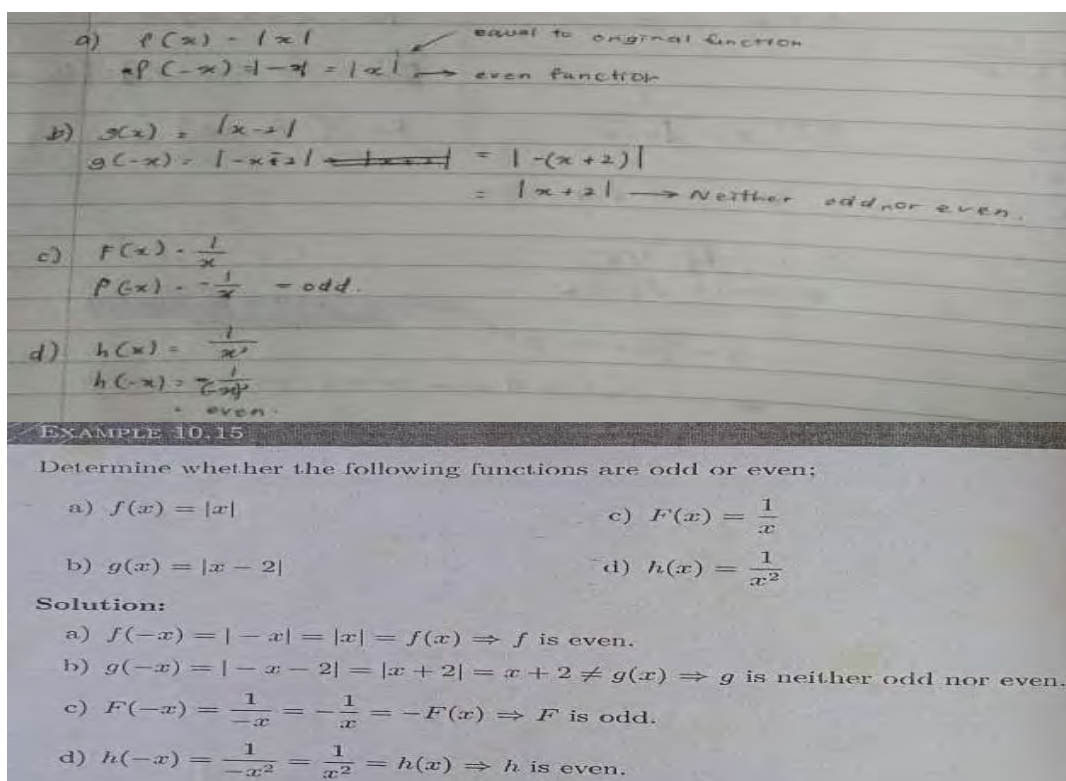 a) f(x) = |x| equal to original function
f(-x) = |-x| = |x| → even function
b) g(x) = |x-2|
g(-x) = |-x-2| = |-(x+2)|
= |x+2| → Neither odd nor even.
c) F(x) = 1/x
f(-x) = -1/x = odd.
d) h(x) = 1/x²
h(-x) =
= even.
EXAMPLE 10.15
Determine whether the following functions are odd or even:
a) f(x) = |x| c) F(x) = 1/x
b) g(x) = |x − 2| d) h(x) = 1/x²
Solution:
a) f(−x) = | − x| = |x| = f(x) ⇒ f is even.
b) g(−x) = | − x − 2| = |x + 2| = x + 2 ≠ g(x) ⇒ g is neither odd nor even.
c) F(−x) = 1/−x = −1/x = −F(x) ⇒ F is odd.
d) h(−x) = 1/−x² = 1/x² = h(x) ⇒ h is even.